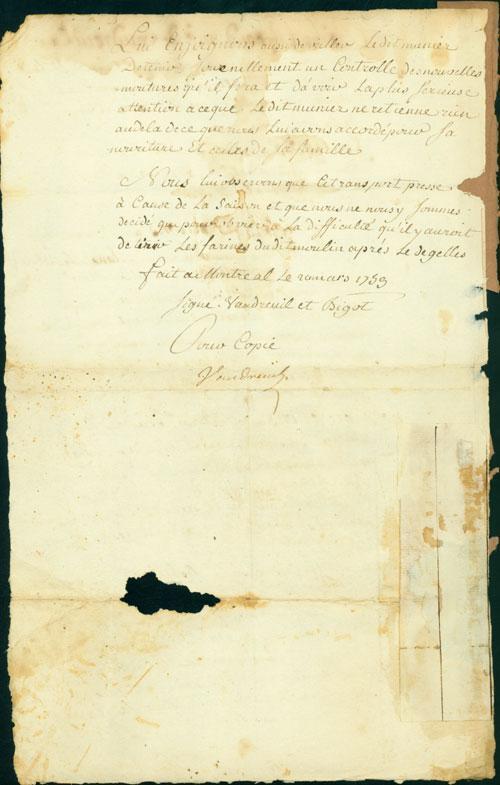 Lui Enjoignons aussi de veiller Ledit munier
De tenir Journellement un Controlle des nouvelles
moutures qu'il fera et d'avoir La plus serieuse
attention a ceque Ledit munier ne retienne rien
audela de ce que nous Lui avons accordé pour sa
nouriture Et celles de sa famille
Nous lui observons que Cet transport presse
à Cause de La Saison et que nous ne nous y sommes
decidé que pour obvier à La difficulté qu'il y auroit
de Les farines du dit moulin aprés Le degelles
fait a Montreal Le mars 1759
Signé Vaudreuil et Bigot
Pour Copie
Vaudreuil